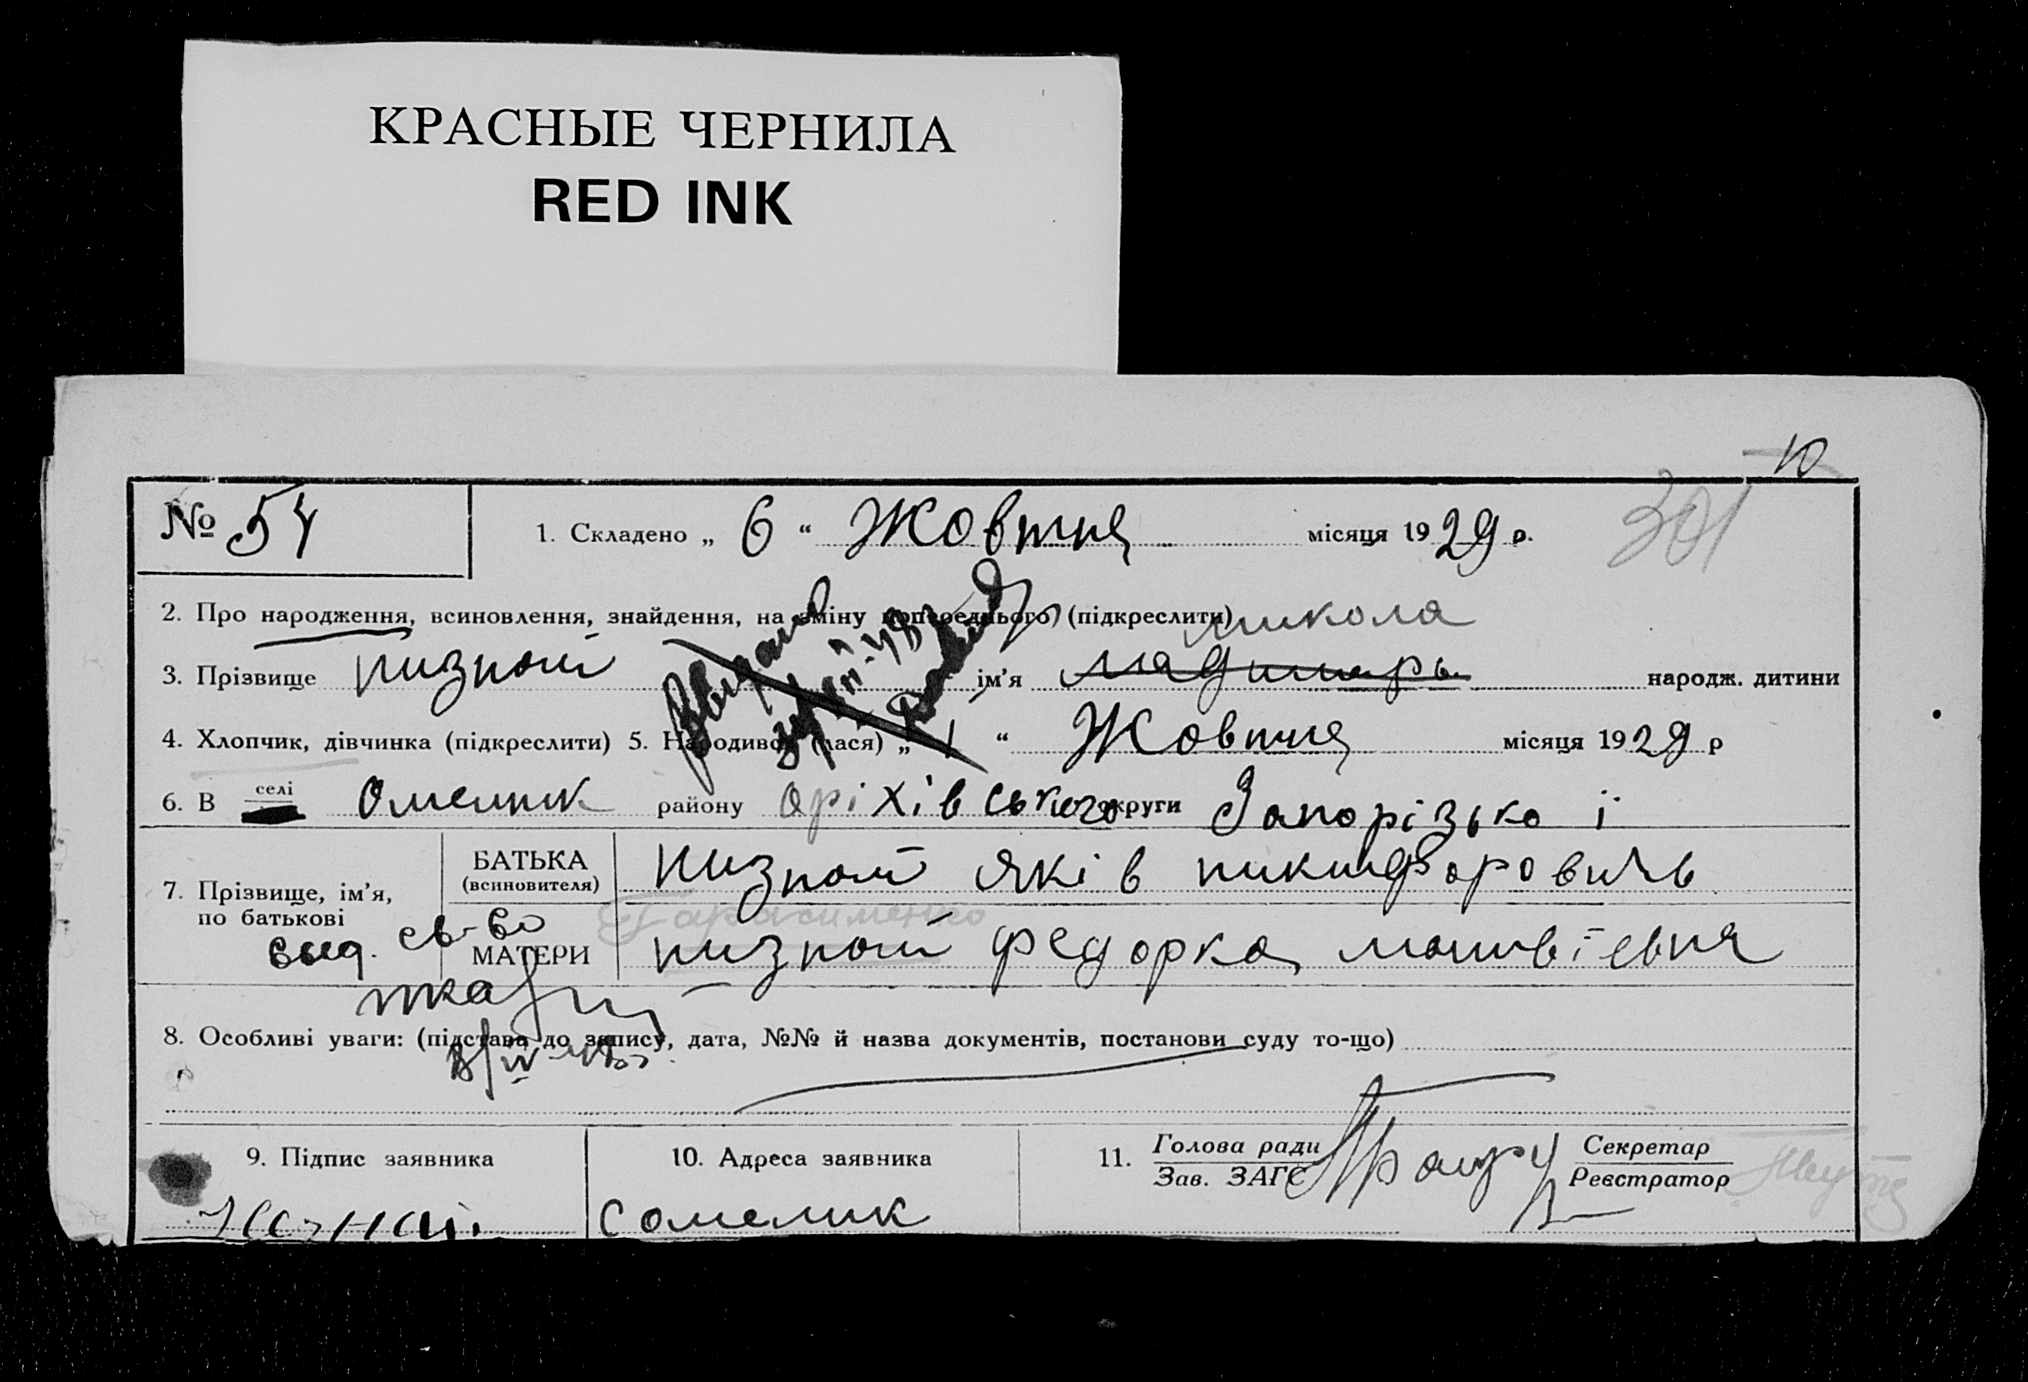 КРАСНЫЕ ЧЕРНИЛА
RED INK
10
№ 54
1. Складено „ 6 “ Жовтня місяця 1929 р.
301
2. Про народження, всиновлення, знайдення, на зміну попереднього (підкреслити)
микола
3. Прізвище пизной ім’я народж. дитини
4. Хлопчик, дівчинка (підкреслити) 5. Народивсь (лася) „ 1 “ Жовтня місяця 1929 р
6. В селі Омелник району оріхівського округи Запорізької
7. Прізвище, ім’я, по батькові
БАТЬКА (всиновителя) пизной яків никифоровичь
Гарасименко
МАТЕРИ пизной федорка матвіевня
выд. св-во
8. Особливі уваги: (підстава до запису, дата, №№ й назва документів, постанови суду то-що)
9. Підпис заявника
10. Адреса заявника
с омелник
11. Голова ради
Зав. ЗАГС
Секретар
Реєстратор